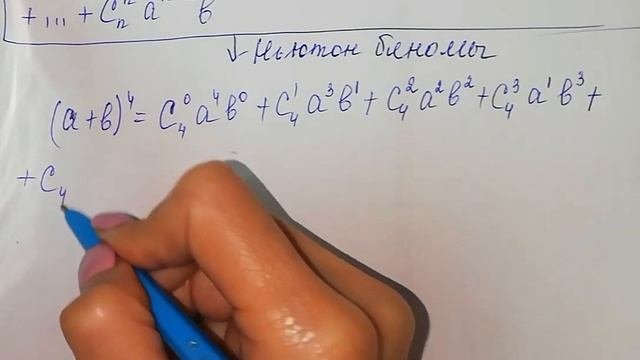 + ... + Cₙⁿ aⁿ⁻ⁿ вⁿ
↓ Ньютон биномы
(a+в)⁴ = C₄⁰ a⁴ в⁰ + C₄¹ a³ в¹ + C₄² a² в² + C₄³ a¹ в³ +
+ C₄